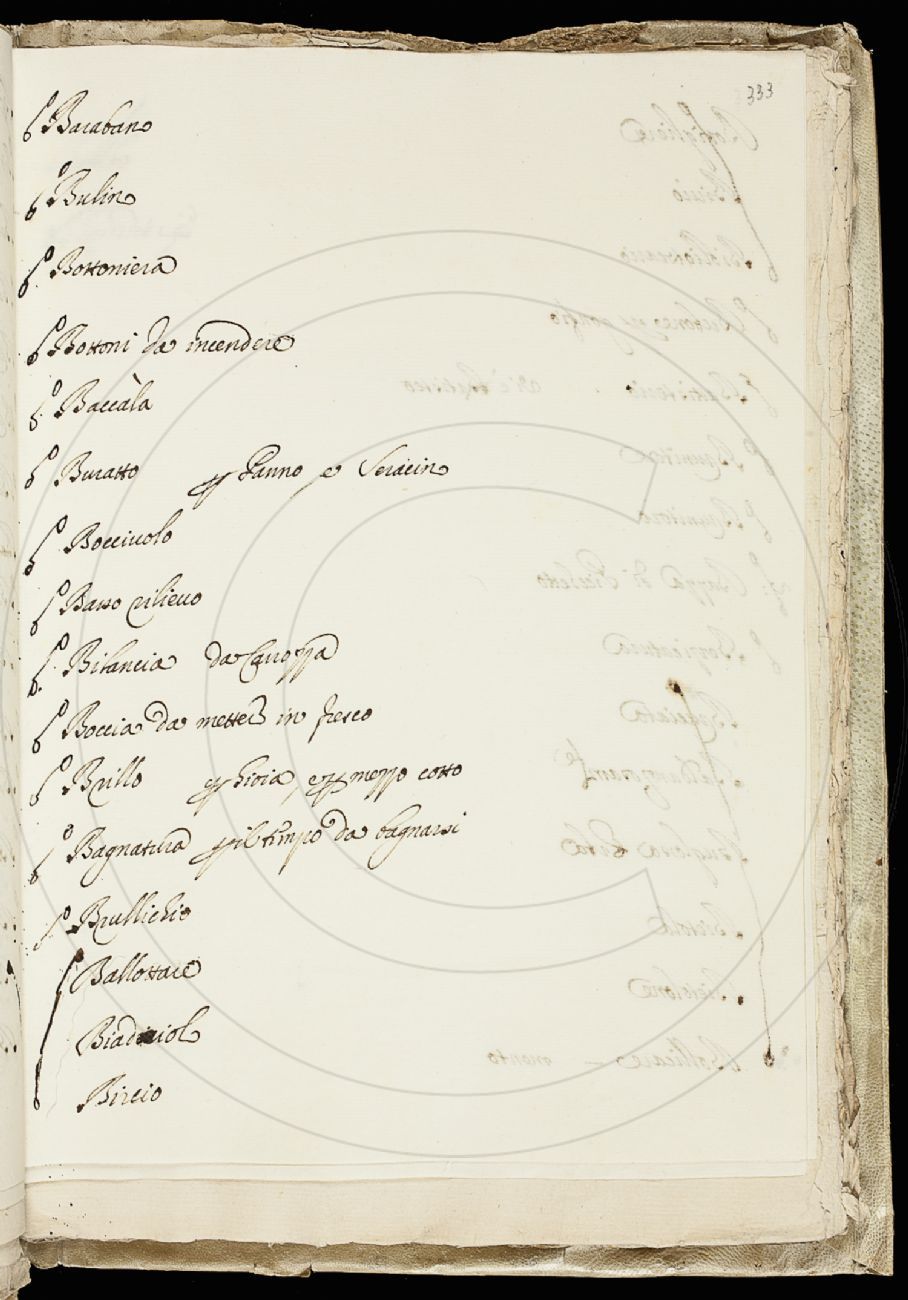 333
Barabano
Bulino
Bottoniera
Bottoni da incendere
Baccàla
Buratto per Panno e Seracino
Bocciuolo
Basso rilieuo
Bilancia da Carozza
Boccia da mettere in fresco
Brillo per Gioia, e per mezzo cotto
Bagnatura per il tempo da bagnarsi
Brullichio
Ballottare
Bircio